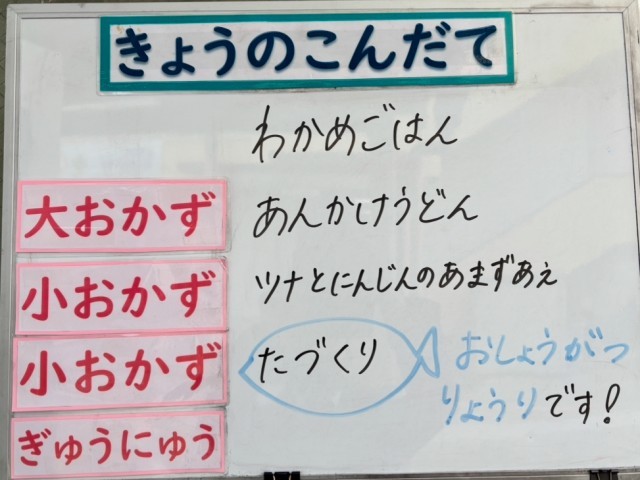 きょうのこんだて
わかめごはん
大おかず あんかけうどん
小おかず ツナとにんじんのあまずあえ
小おかず たづくり おしょうがつ
りょうりです!
ぎゅうにゅう